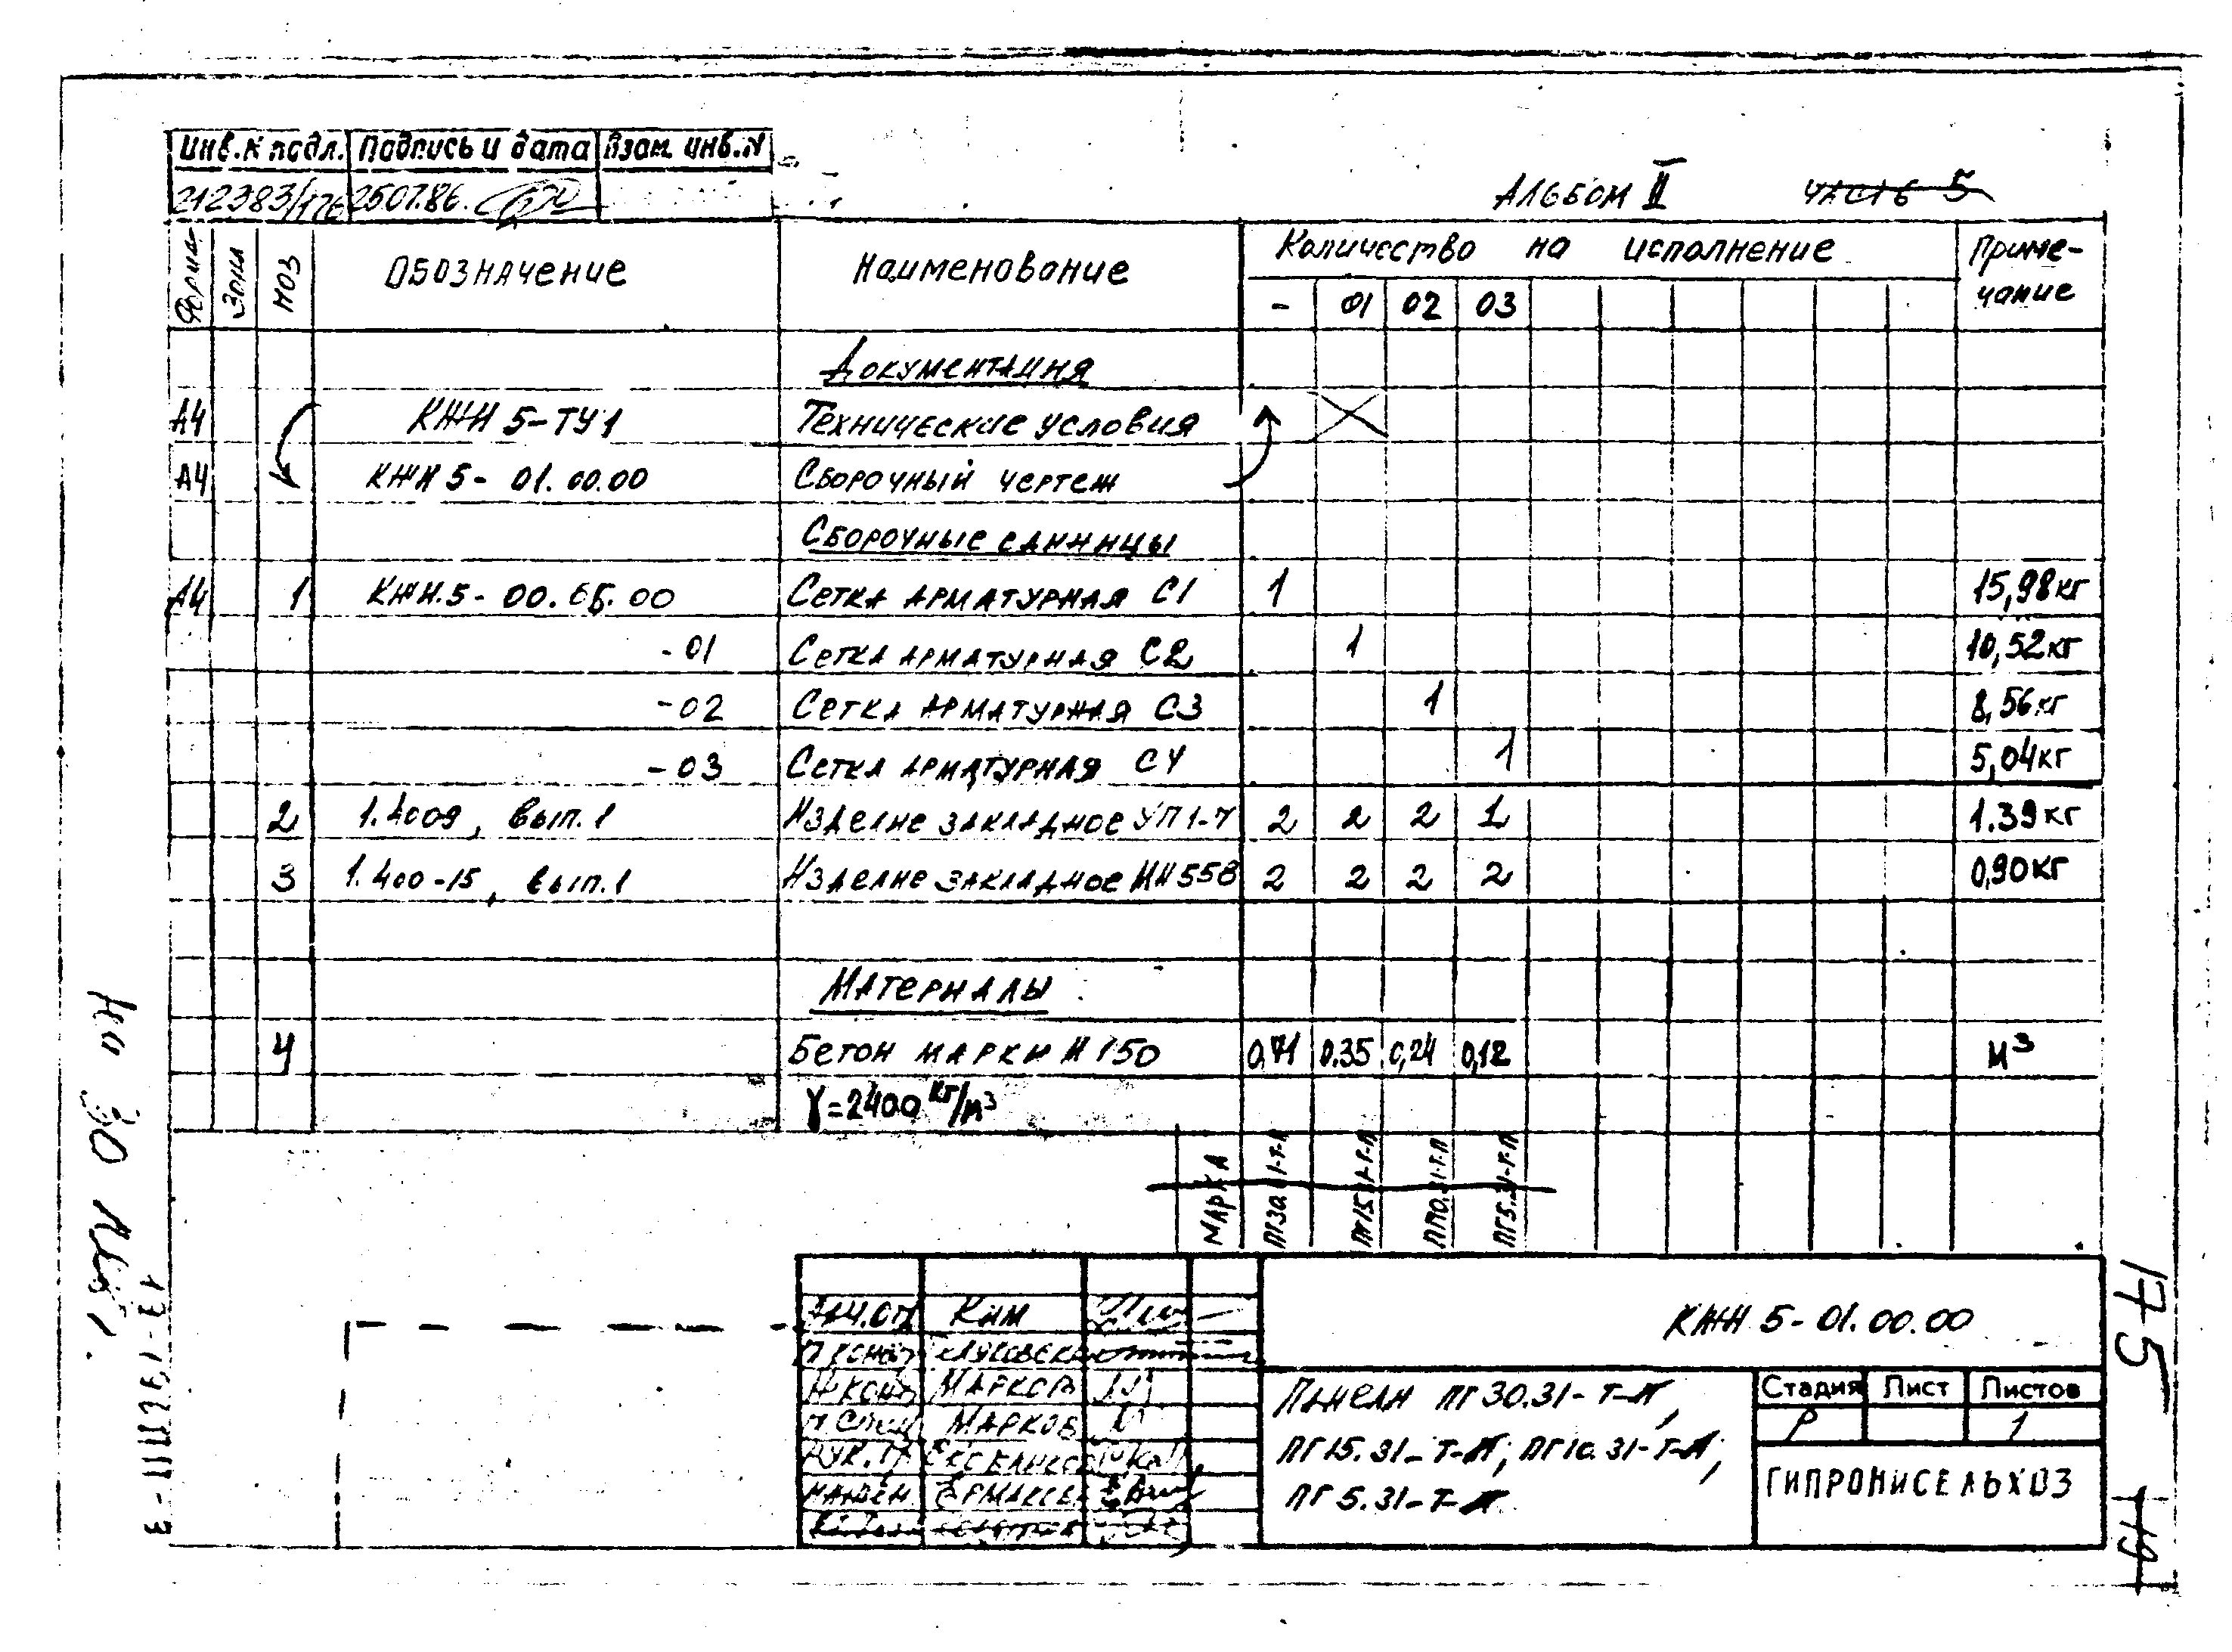 Инв.N подл. Подпись и дата Взам. инв.N
212383/176 250786.
АЛЬБОМ II ЧАСТЬ 5
Формa- Зона ПОЗ ОБОЗНАЧЕНИЕ НАИМЕНОВАНИЕ Количество на исполнение Приме-
чание
- 01 02 03
ДОКУМЕНТАЦИЯ
А4 КЖИ 5-ТУ1 ТЕХНИЧЕСКИЕ УСЛОВИЯ
А4 КЖИ 5- 01.00.00 СБОРОЧНЫЙ ЧЕРТЕЖ
СБОРОЧНЫЕ ЕДИНИЦЫ
А4 1 КЖИ.5- 00.05.00 СЕТКА АРМАТУРНАЯ С1 1 15,98кг
-01 СЕТКА АРМАТУРНАЯ С2 1 10,52кг
-02 СЕТКА АРМАТУРНАЯ С3 1 8,56кг
-03 СЕТКА АРМАТУРНАЯ С4 1 5,04кг
2 1.4009, вып.1 ИЗДЕЛИЕ ЗАКЛАДНОЕ УП1-7 2 2 2 1 1.39кг
3 1.400-15, вып.1 ИЗДЕЛИЕ ЗАКЛАДНОЕ МН558 2 2 2 2 0,90кг
МАТЕРИАЛЫ
4 БЕТОН МАРКИ М150 0,71 0.35 0,24 0,12 м³
γ=2400 кг/м³
МАРКА ПГ15.31-Т-П ПГ10.31-Т-П ПГ5.31-Т-П
КЖИ 5-01.00.00
Ким
МАРКОВ
МАРКОВ
РУК.ГР
ПАНЕЛИ ПГ30.31-Т-П,
ПГ15.31-Т-П, ПГ10.31-Т-П,
ПГ5.31-Т-П
Стадия Лист Листов
Р 1
ГИПРОНИСЕЛЬХОЗ
175
19